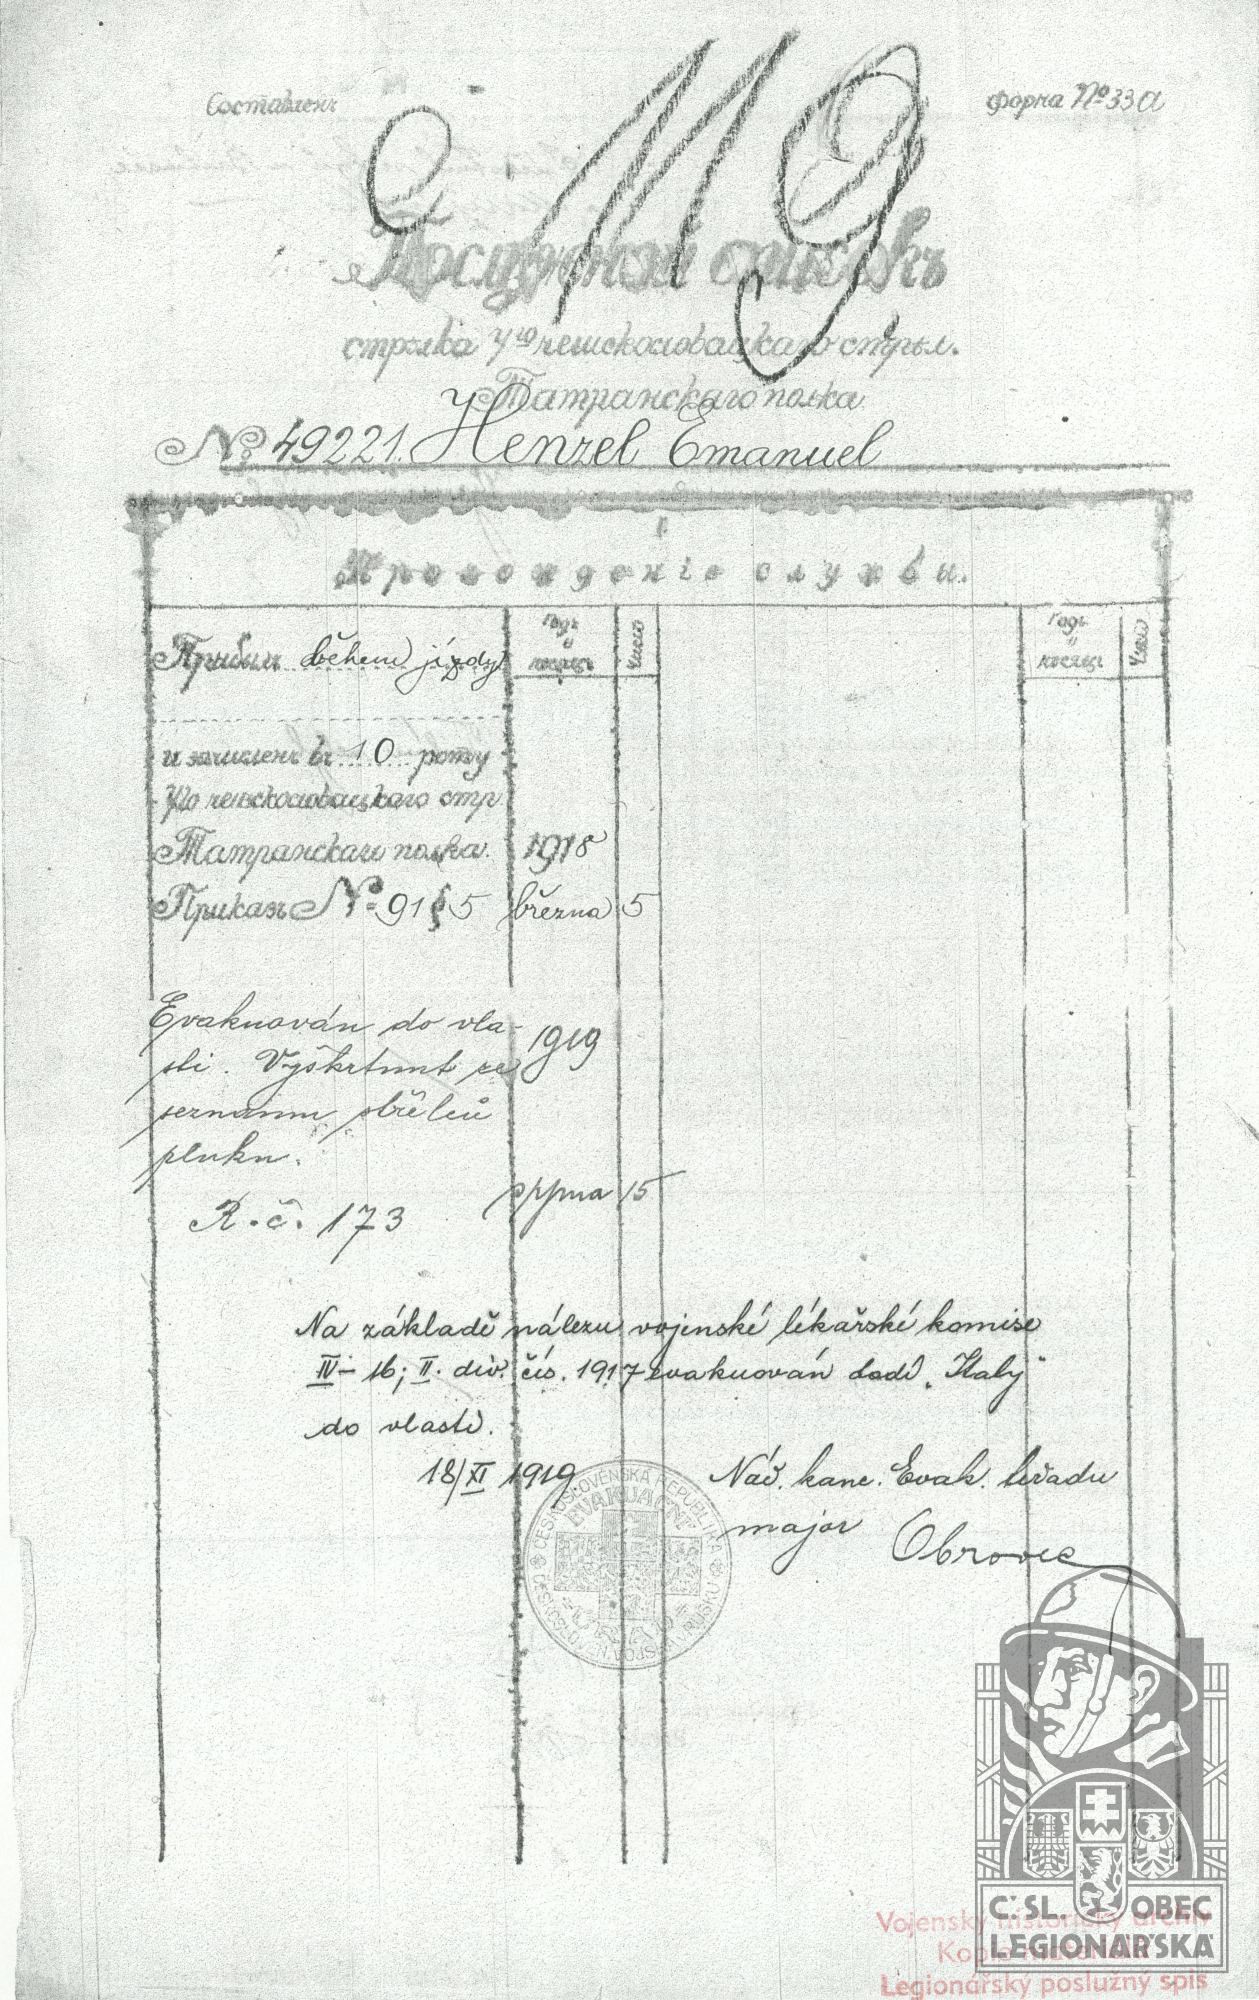 Составленъ
форма № 33а
Послужной списокъ
стрѣлка 7го чешскословацкаго стрѣл.
Татранскаго полка
№ 49221. Henzel Emanuel
I.
Прохожденіе службы.
Прибылъ během jízdy
Годъ и мѣсяцъ
Число
Годъ и мѣсяцъ
Число
и зачисленъ въ 10 роту
7го чешскословацкаго стр.
Татранскаго полка. 1918
Приказъ № 91 § 5 března 5
Evakuován do vla- 1919
sti. Vyškrtnut ze
seznamu střelců
pluku.
srpna 15
R. č. 173
Na základě nálezu vojenské lékařské komise
IV – 16; II. div. čís. 1917 evakuován lodí „Italy"
do vlasti.
18/XI 1919
Náč. kanc. Evak. úřadu
major Obrovec
ČESKOSLOVENSKÁ REPUBLIKA
EVAKUAČNÍ
ÚŘAD
ČESKOSLOV. VOJSKA V RUSKU
Č.SL. OBEC
LEGIONÁŘSKÁ
Vojenský historický archiv
Kopie materiálu
Legionářský poslužný spis